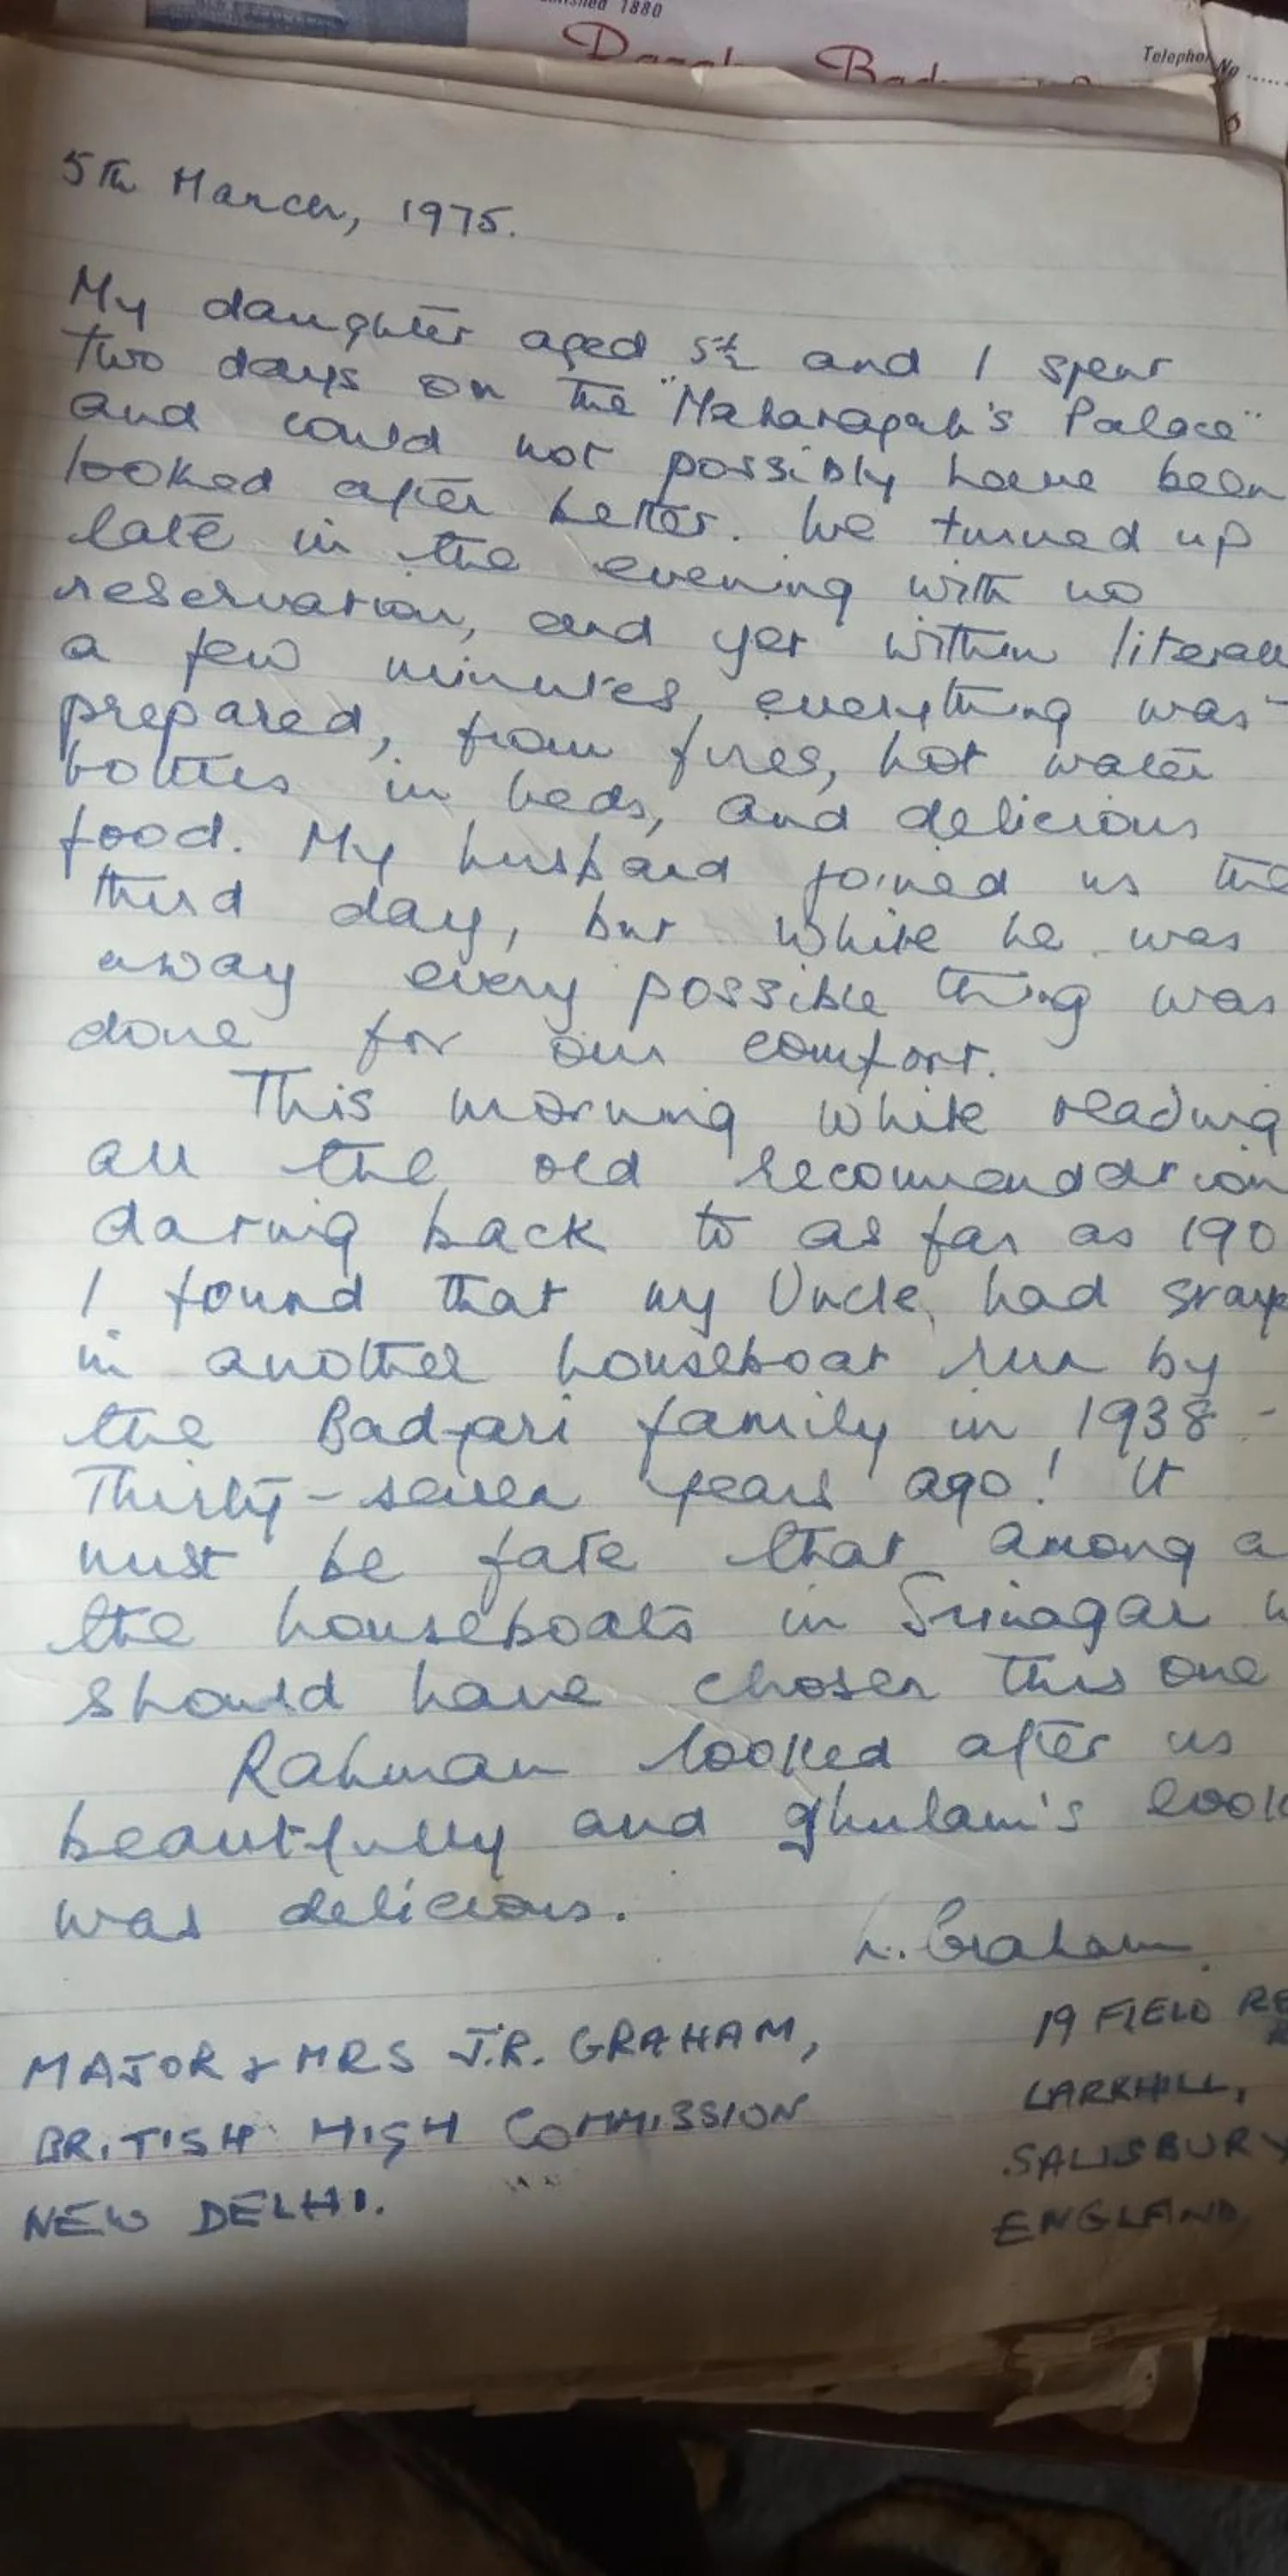 1880
Telephone No ......
5th March, 1975.
My daughter aged 5½ and I spent
two days on the "Maharagah's Palace"
and could not possibly have been
looked after better. We turned up
late in the evening with no
reservation, and yet within literall
a few minutes, everything was
prepared, from fires, hot water
bottles in beds, and delicious
food. My husband joined us the
third day, but while he was
away every possible thing was
done for our comfort.
This morning while reading
all the old recommendation
dating back to as far as 190
I found that my Uncle had stay
in another houseboat run by
the Badyari family in 1938 -
Thirty-seven years ago! It
must be fate that among a
the houseboats in Srinagar w
should have chosen this one
Rahman looked after us
beautifully and Ghulam's cook
was delicious.
L. Graham
MAJOR & MRS J.R. GRAHAM,
BRITISH HIGH COMMISSION
NEW DELHI.
19 FIELD RE
LARKHILL,
SALISBURY
ENGLAND